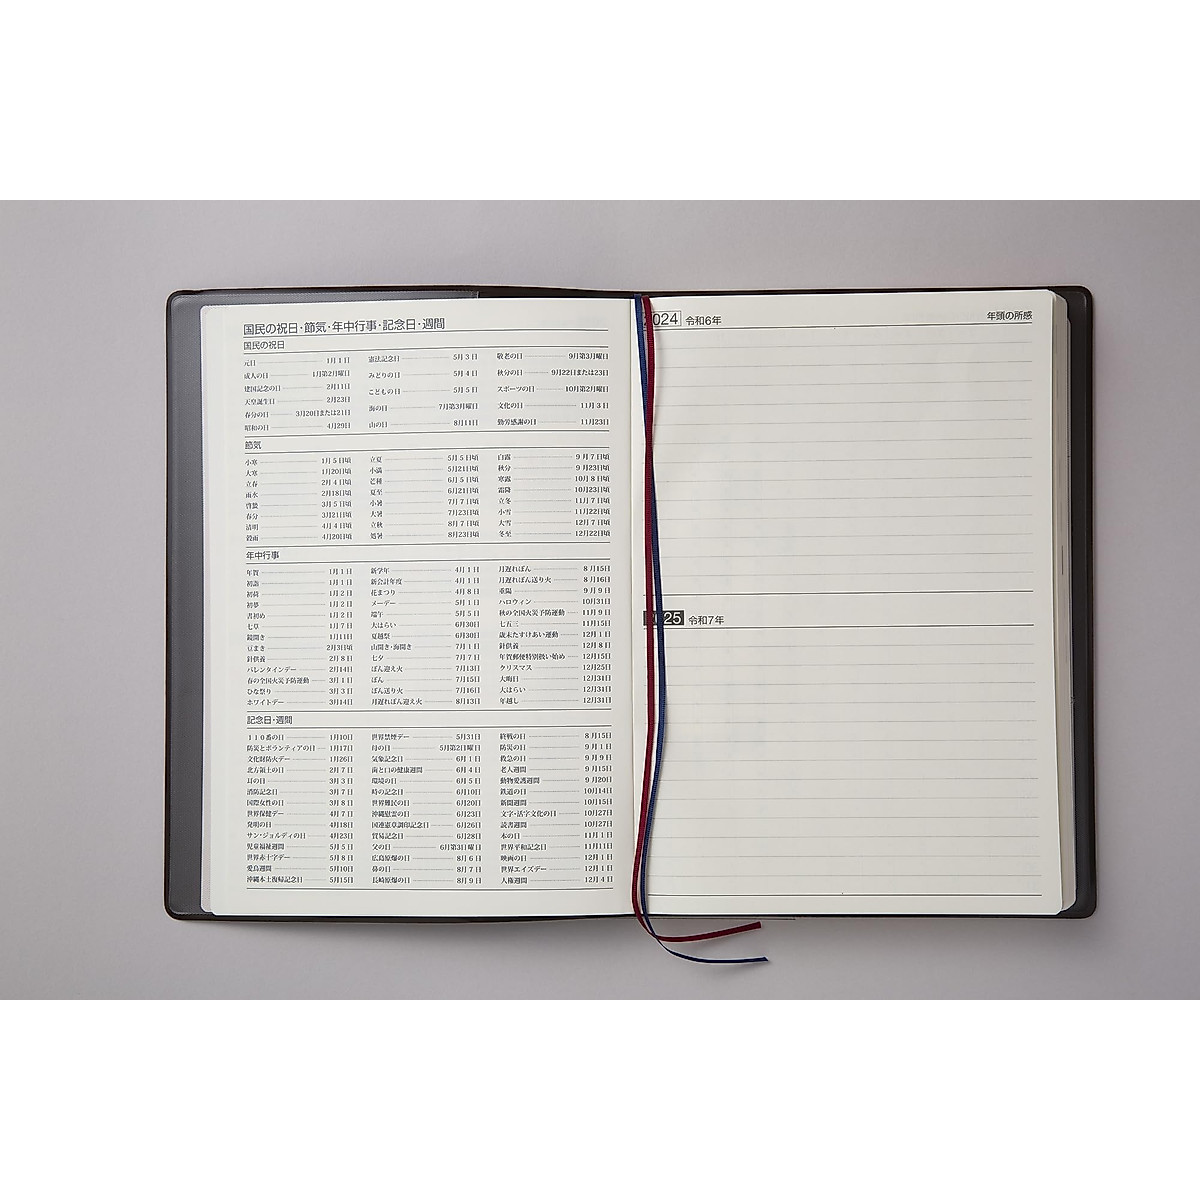 国民の祝日・節気・年中行事・記念日・週間
国民の祝日
元日 1月1日
成人の日 1月第2月曜日
建国記念の日 2月11日
天皇誕生日 2月23日
春分の日 3月20日または21日
昭和の日 4月29日
憲法記念日 5月3日
みどりの日 5月4日
こどもの日 5月5日
海の日 7月第3月曜日
山の日 8月11日
敬老の日 9月第3月曜日
秋分の日 9月22日または23日
スポーツの日 10月第2月曜日
文化の日 11月3日
勤労感謝の日 11月23日
節気
小寒 1月5日頃
大寒 1月20日頃
立春 2月4日頃
雨水 2月18日頃
啓蟄 3月5日頃
春分 3月21日頃
清明 4月4日頃
穀雨 4月20日頃
立夏 5月5日頃
小満 5月21日頃
芒種 6月5日頃
夏至 6月21日頃
小暑 7月7日頃
大暑 7月23日頃
立秋 8月7日頃
処暑 8月23日頃
白露 9月7日頃
秋分 9月23日頃
寒露 10月8日頃
霜降 10月23日頃
立冬 11月7日頃
小雪 11月22日頃
大雪 12月7日頃
冬至 12月22日頃
年中行事
年賀 1月1日
初詣 1月1日
初荷 1月2日
初夢 1月2日
書初め 1月2日
七草 1月7日
鏡開き 1月11日
豆まき 2月3日頃
針供養 2月8日
バレンタインデー 2月14日
春の全国火災予防運動 3月1日
ひな祭り 3月3日
ホワイトデー 3月14日
新学年 4月1日
新会計年度 4月1日
花まつり 4月8日
メーデー 5月1日
端午 5月5日
大はらい 6月30日
夏越祭 6月30日
山開き・海開き 7月1日
七夕 7月7日
ぼん迎え火 7月13日
ぼん 7月15日
ぼん送り火 7月16日
月遅れぼん迎え火 8月13日
月遅れぼん 8月15日
月遅れぼん送り火 8月16日
重陽 9月9日
ハロウィン 10月31日
秋の全国火災予防運動 11月9日
七五三 11月15日
歳末たすけあい運動 12月1日
針供養 12月8日
年賀郵便特別扱い始め 12月15日
クリスマス 12月25日
大晦日 12月31日
大はらい 12月31日
年越し 12月31日
記念日・週間
110番の日 1月10日
防災とボランティアの日 1月17日
文化財防火デー 1月26日
北方領土の日 2月7日
耳の日 3月3日
消防記念日 3月7日
国際女性の日 3月8日
世界保健デー 4月7日
発明の日 4月18日
サン・ジョルディの日 4月23日
児童福祉週間 5月5日
世界赤十字デー 5月8日
愛鳥週間 5月10日
沖縄本土復帰記念日 5月15日
世界禁煙デー 5月31日
母の日 5月第2日曜日
気象記念日 6月1日
歯と口の健康週間 6月4日
環境の日 6月5日
時の記念日 6月10日
世界難民の日 6月20日
沖縄慰霊の日 6月23日
国連憲章調印記念日 6月26日
貿易記念日 6月28日
父の日 6月第3日曜日
広島原爆の日 8月6日
鼻の日 8月7日
長崎原爆の日 8月9日
終戦の日 8月15日
防災の日 9月1日
救急の日 9月9日
老人週間 9月15日
動物愛護週間 9月20日
鉄道の日 10月14日
新聞週間 10月15日
文字・活字文化の日 10月27日
読書週間 10月27日
本の日 11月1日
世界平和記念日 11月11日
映画の日 12月1日
世界エイズデー 12月1日
人権週間 12月4日
2024 令和6年 年頭の所感
2025 令和7年